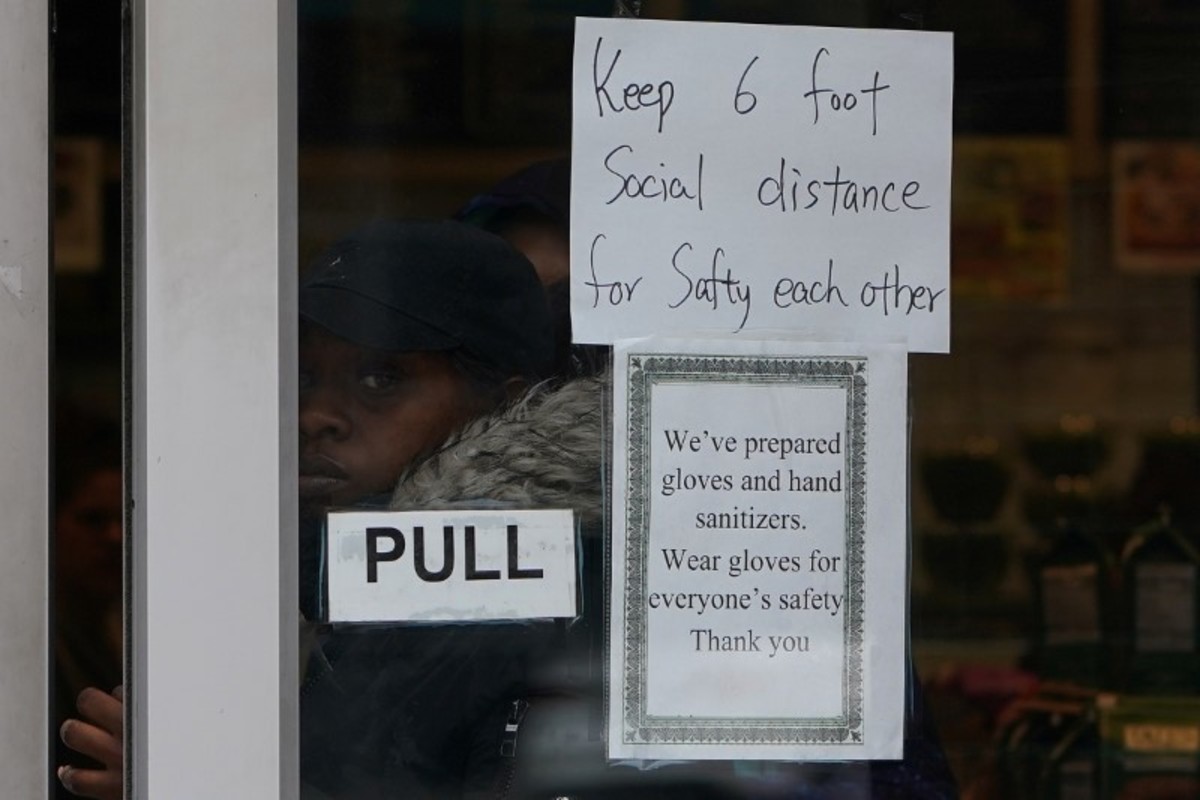 Keep 6 foot
Social distance
for Safty each other
We've prepared
gloves and hand
sanitizers.
Wear gloves for
everyone's safety
Thank you
PULL